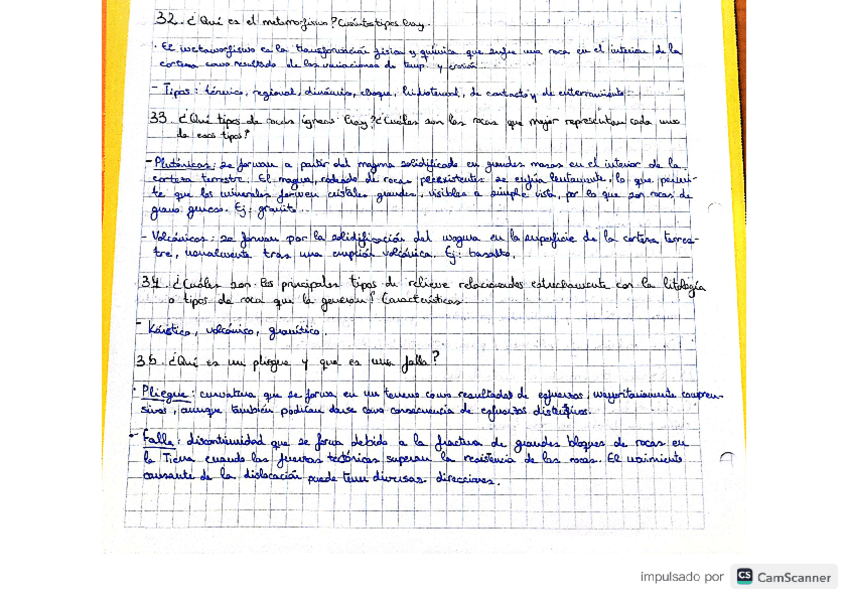 32. ¿Qué es el metamorfismo? Cuántos tipos hay.
· El metamorfismo es la transformación física y química que sufre una roca en el interior de la
corteza como resultado de las variaciones de temp. y presión.
- Tipos: térmico, regional, dinámico, choque, hidrotermal, de contacto y de enterramiento.
33. ¿Qué tipos de rocas ígneas hay? ¿Cuáles son las rocas que mejor representan cada uno
de esos tipos?
- Plutónicas: se forman a partir del magma solidificado en grandes masas en el interior de la
corteza terrestre. El magma, rodeado de rocas preexistentes se enfría lentamente, lo que permi-
te que los minerales formen cristales grandes, visibles a simple vista, por lo que son rocas de
grano grueso. Ej: granito...
- Volcánicas: se forman por la solidificación del magma en la superficie de la corteza terres-
tre, usualmente tras una erupción volcánica. Ej: basalto.
34. ¿Cuáles son los principales tipos de relieve relacionados estrechamente con la litología
o tipos de roca que la generan? Características.
- Kárstico, volcánico, granítico.
36. ¿Qué es un pliegue y que es una falla?
· Pliegue: curvatura que se forma en un terreno como resultado de esfuerzos, mayoritariamente compren-
sivos, aunque también podrían darse como consecuencia de esfuerzos distensivos.
- Falla: discontinuidad que se forma debido a la fractura de grandes bloques de rocas en
la Tierra cuando las fuerzas tectónicas superan la resistencia de las rocas. El movimiento
causante de la dislocación puede tener diversas direcciones.
impulsado por CS CamScanner